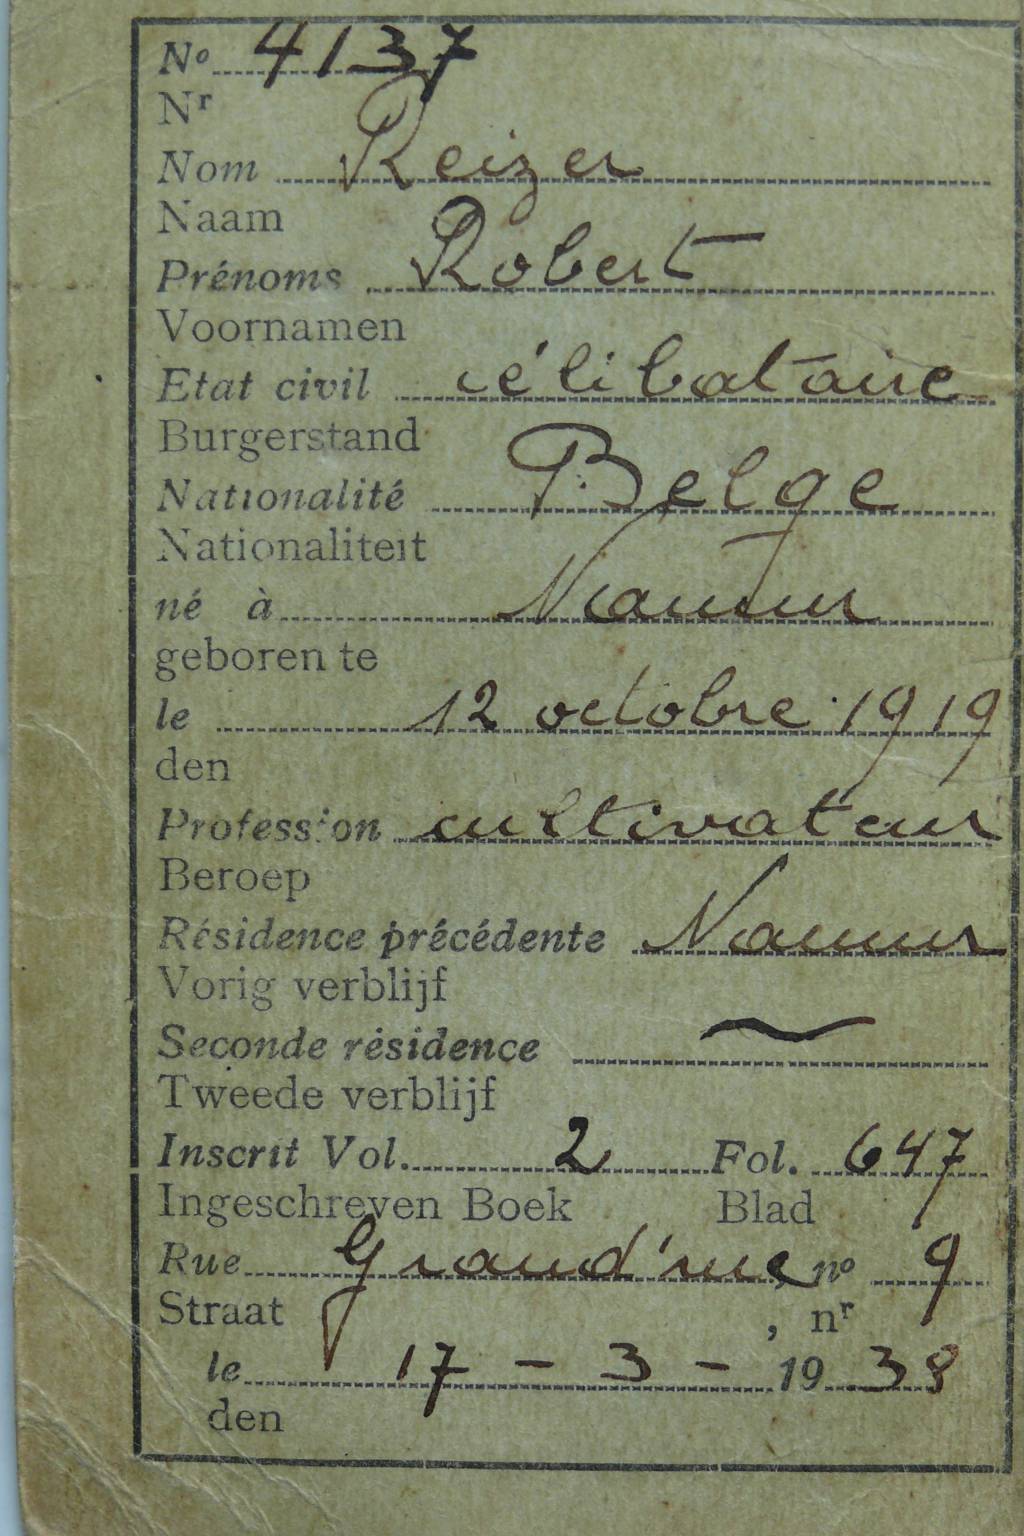 No 4137
Nr
Nom Reizer
Naam
Prénoms Robert
Voornamen
Etat civil célibataire
Burgerstand
Nationalité Belge
Nationaliteit
né à Namur
geboren te
le 12 octobre 1919
den
Profession cultivateur
Beroep
Résidence précédente Namur
Vorig verblijf
Seconde résidence ~
Tweede verblijf
Inscrit Vol. 2 Fol. 647
Ingeschreven Boek Blad
Rue Grand'rue, no 9
Straat , nr
le 17 - 3 - 1938
den